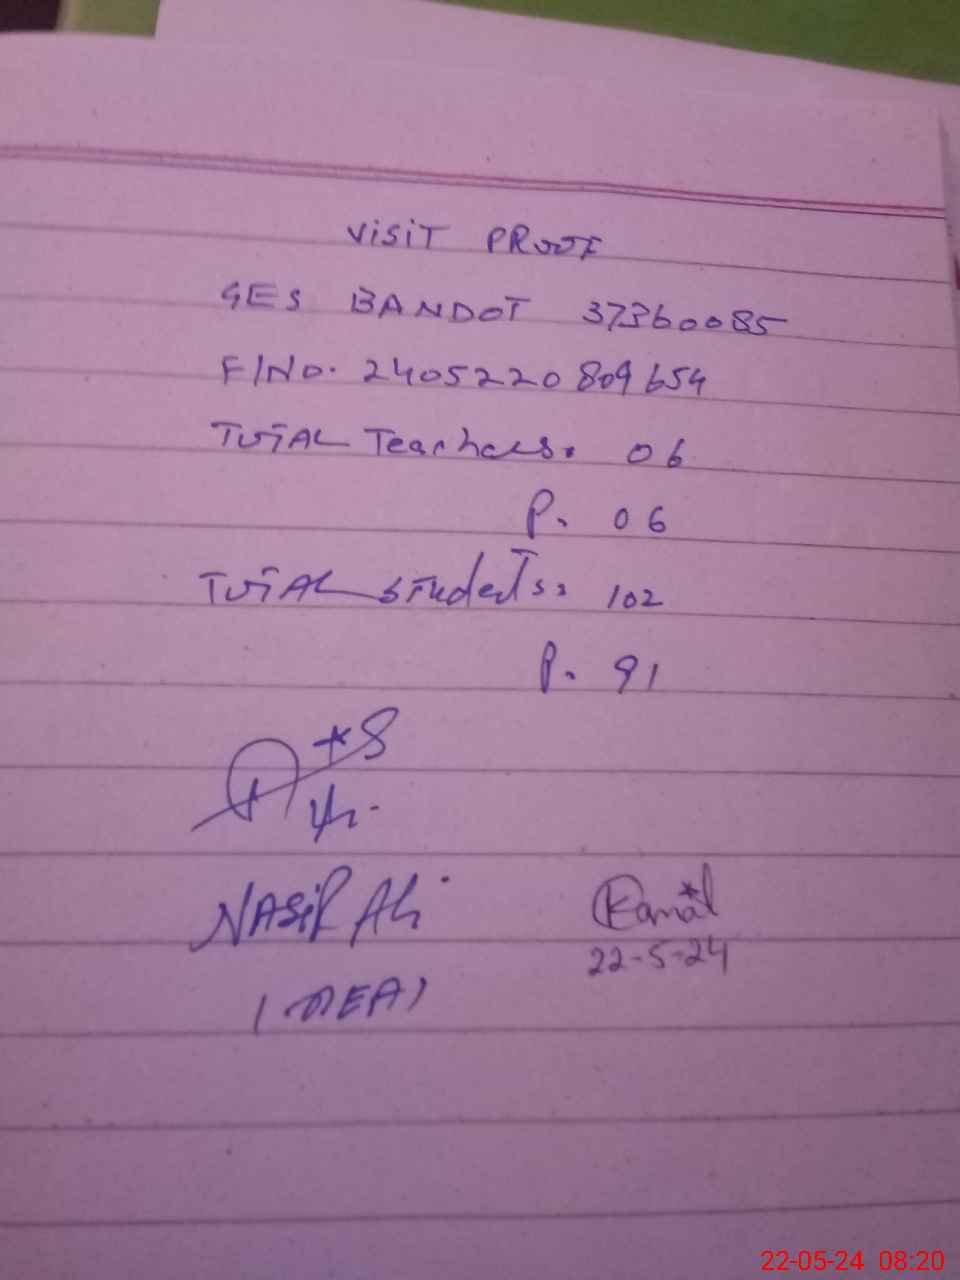 VISIT PROOF
GES BANDOT 37360085
F/NO. 2405220809654
TOTAL Teachers. 06
P. 06
TOTAL students: 102
P. 91
NASIR Ali
(AEA)
Kamal
22-5-24
22-05-24 08:20